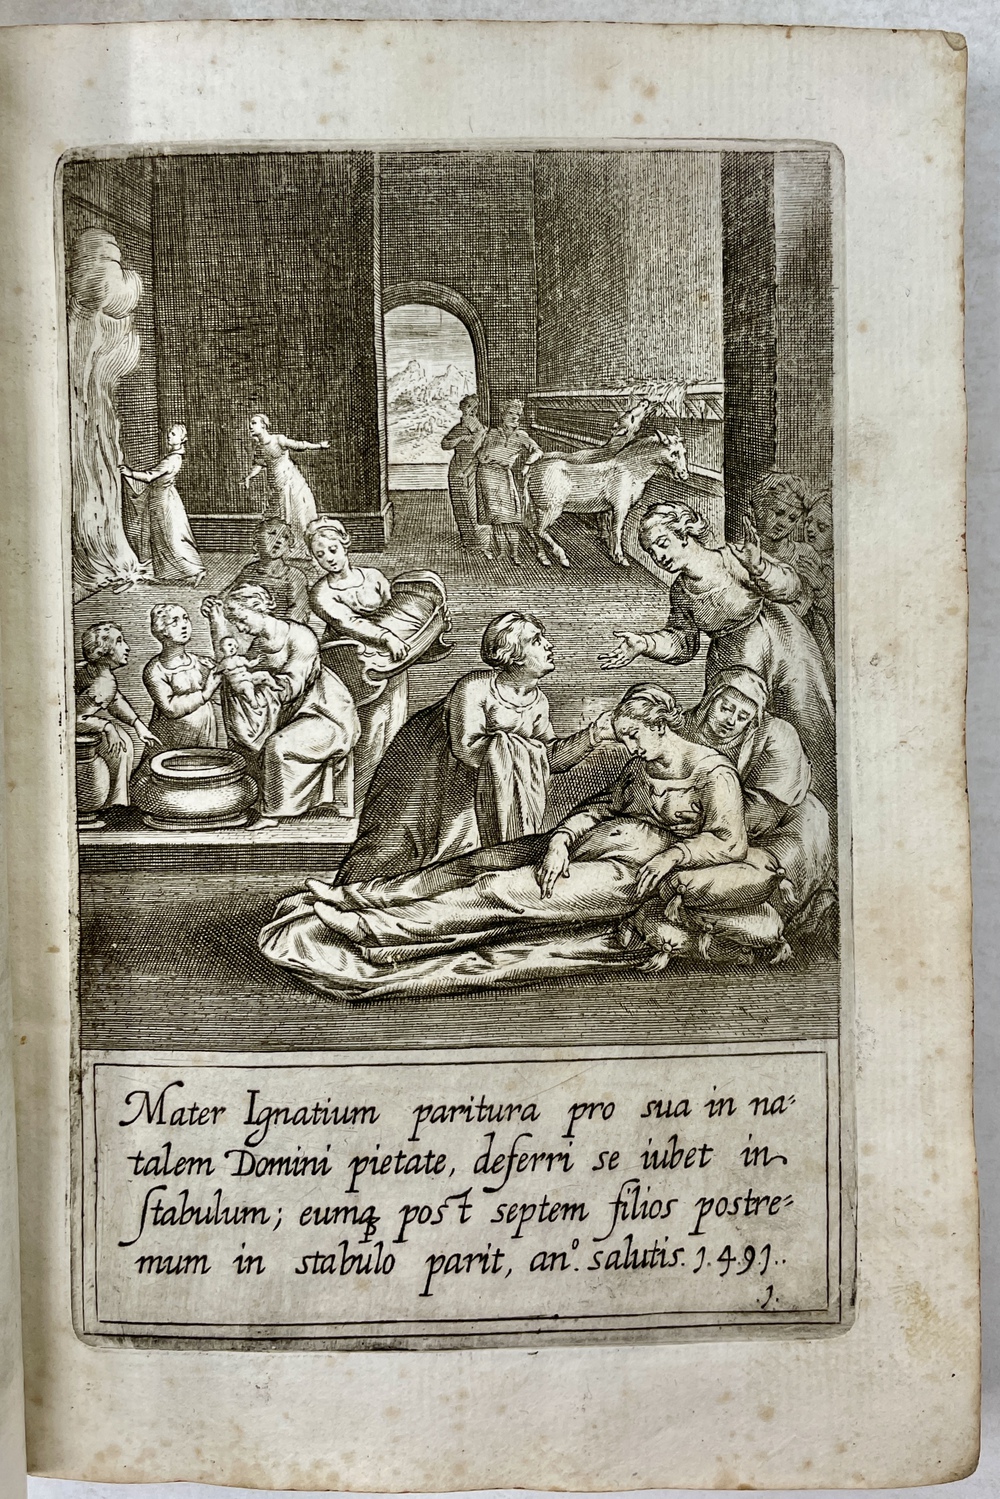 Mater Ignatium paritura pro sua in na⸗
talem Domini pietate, deferri se iubet in
ſtabulum; eumqꝫ post septem filios postre⸗
mum in stabulo parit, an°. salutis. 1.491..
.1.